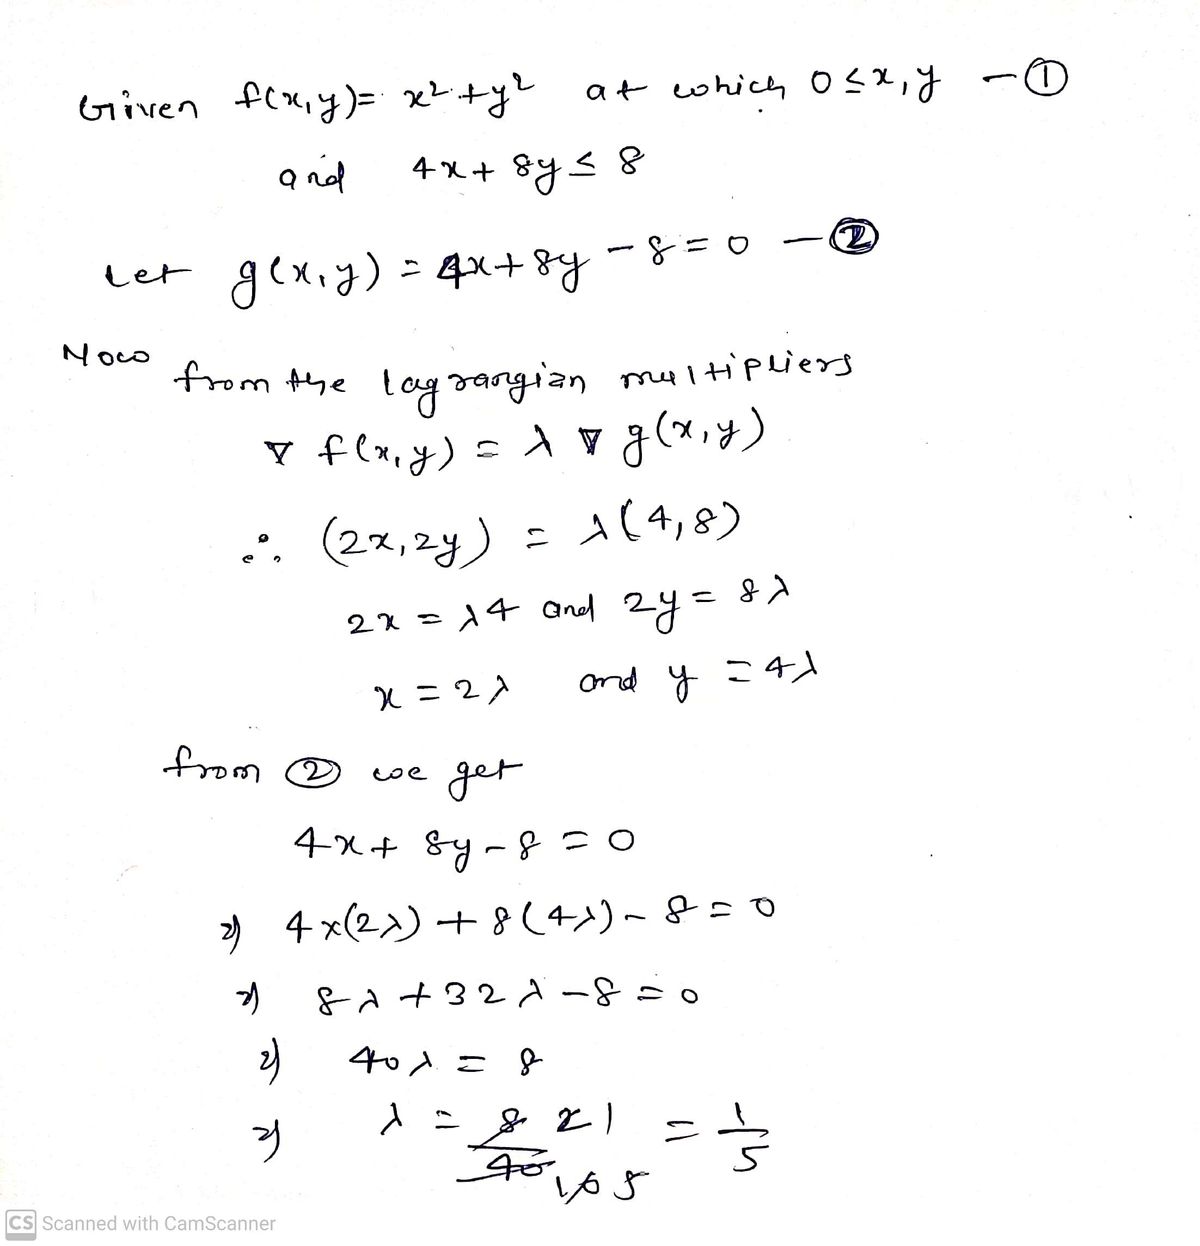 Given f(x,y) = x² + y² at which 0 ≤ x, y — ①
and 4x + 8y ≤ 8
Let g(x,y) = 4x + 8y - 8 = 0 — ②
Now from the lagrangian multipliers
∇ f(x,y) = λ ∇ g(x,y)
∴ (2x, 2y) = λ(4,8)
2x = λ4 and 2y = 8λ
x = 2λ and y = 4λ
from ② we get
4x + 8y - 8 = 0
⇒ 4×(2λ) + 8(4λ) - 8 = 0
⇒ 8λ + 32λ - 8 = 0
⇒ 40λ = 8
⇒ λ = 8/40 = 1/5
CS Scanned with CamScanner